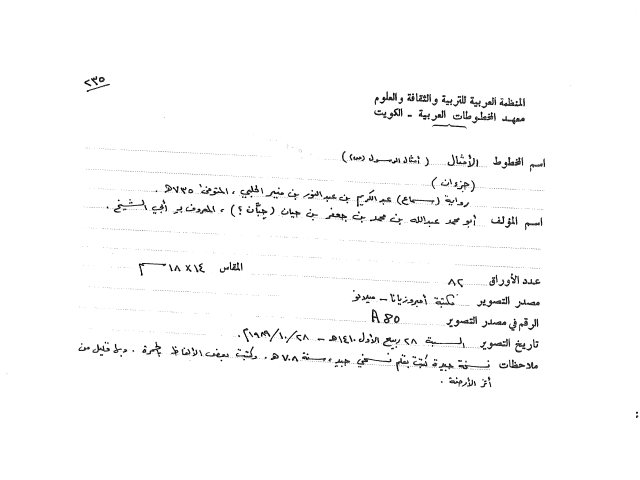 ٢٣٥
المنظمة العربية للتربية والثقافة والعلوم
معهد المخطوطات العربية - الكويت
اسم المخطوط الأمثال ( أمثال الرسول (ص) )
( جزءان )
رواية (سماع) عبد الكريم بن عبد النور بن منير الحلبي ، المتوفى ٧٣٥ هـ .
اسم المؤلف أبو محمد عبدالله بن محمد بن جعفر بن حيان (حبّان ؟) ، المعروف بـ أبي الشيخ .
عدد الأوراق ٨٢ المقاس ١٤ × ١٨ سم
مصدر التصوير مكتبة أمبروزيانا - ميلانو
الرقم في مصدر التصوير A 80
تاريخ التصوير السبت ٢٨ ربيع الأول ١٤١٠ هـ - ٢٨ / ١٠ / ١٩٨٩ م.
ملاحظات نسخة جيدة كتبت بقلم نسخي جيد ، سنة ٧٠٨ هـ . وكتبت بعض الألفاظ بحمرة . وبها قليل من
أثر الأرضة .